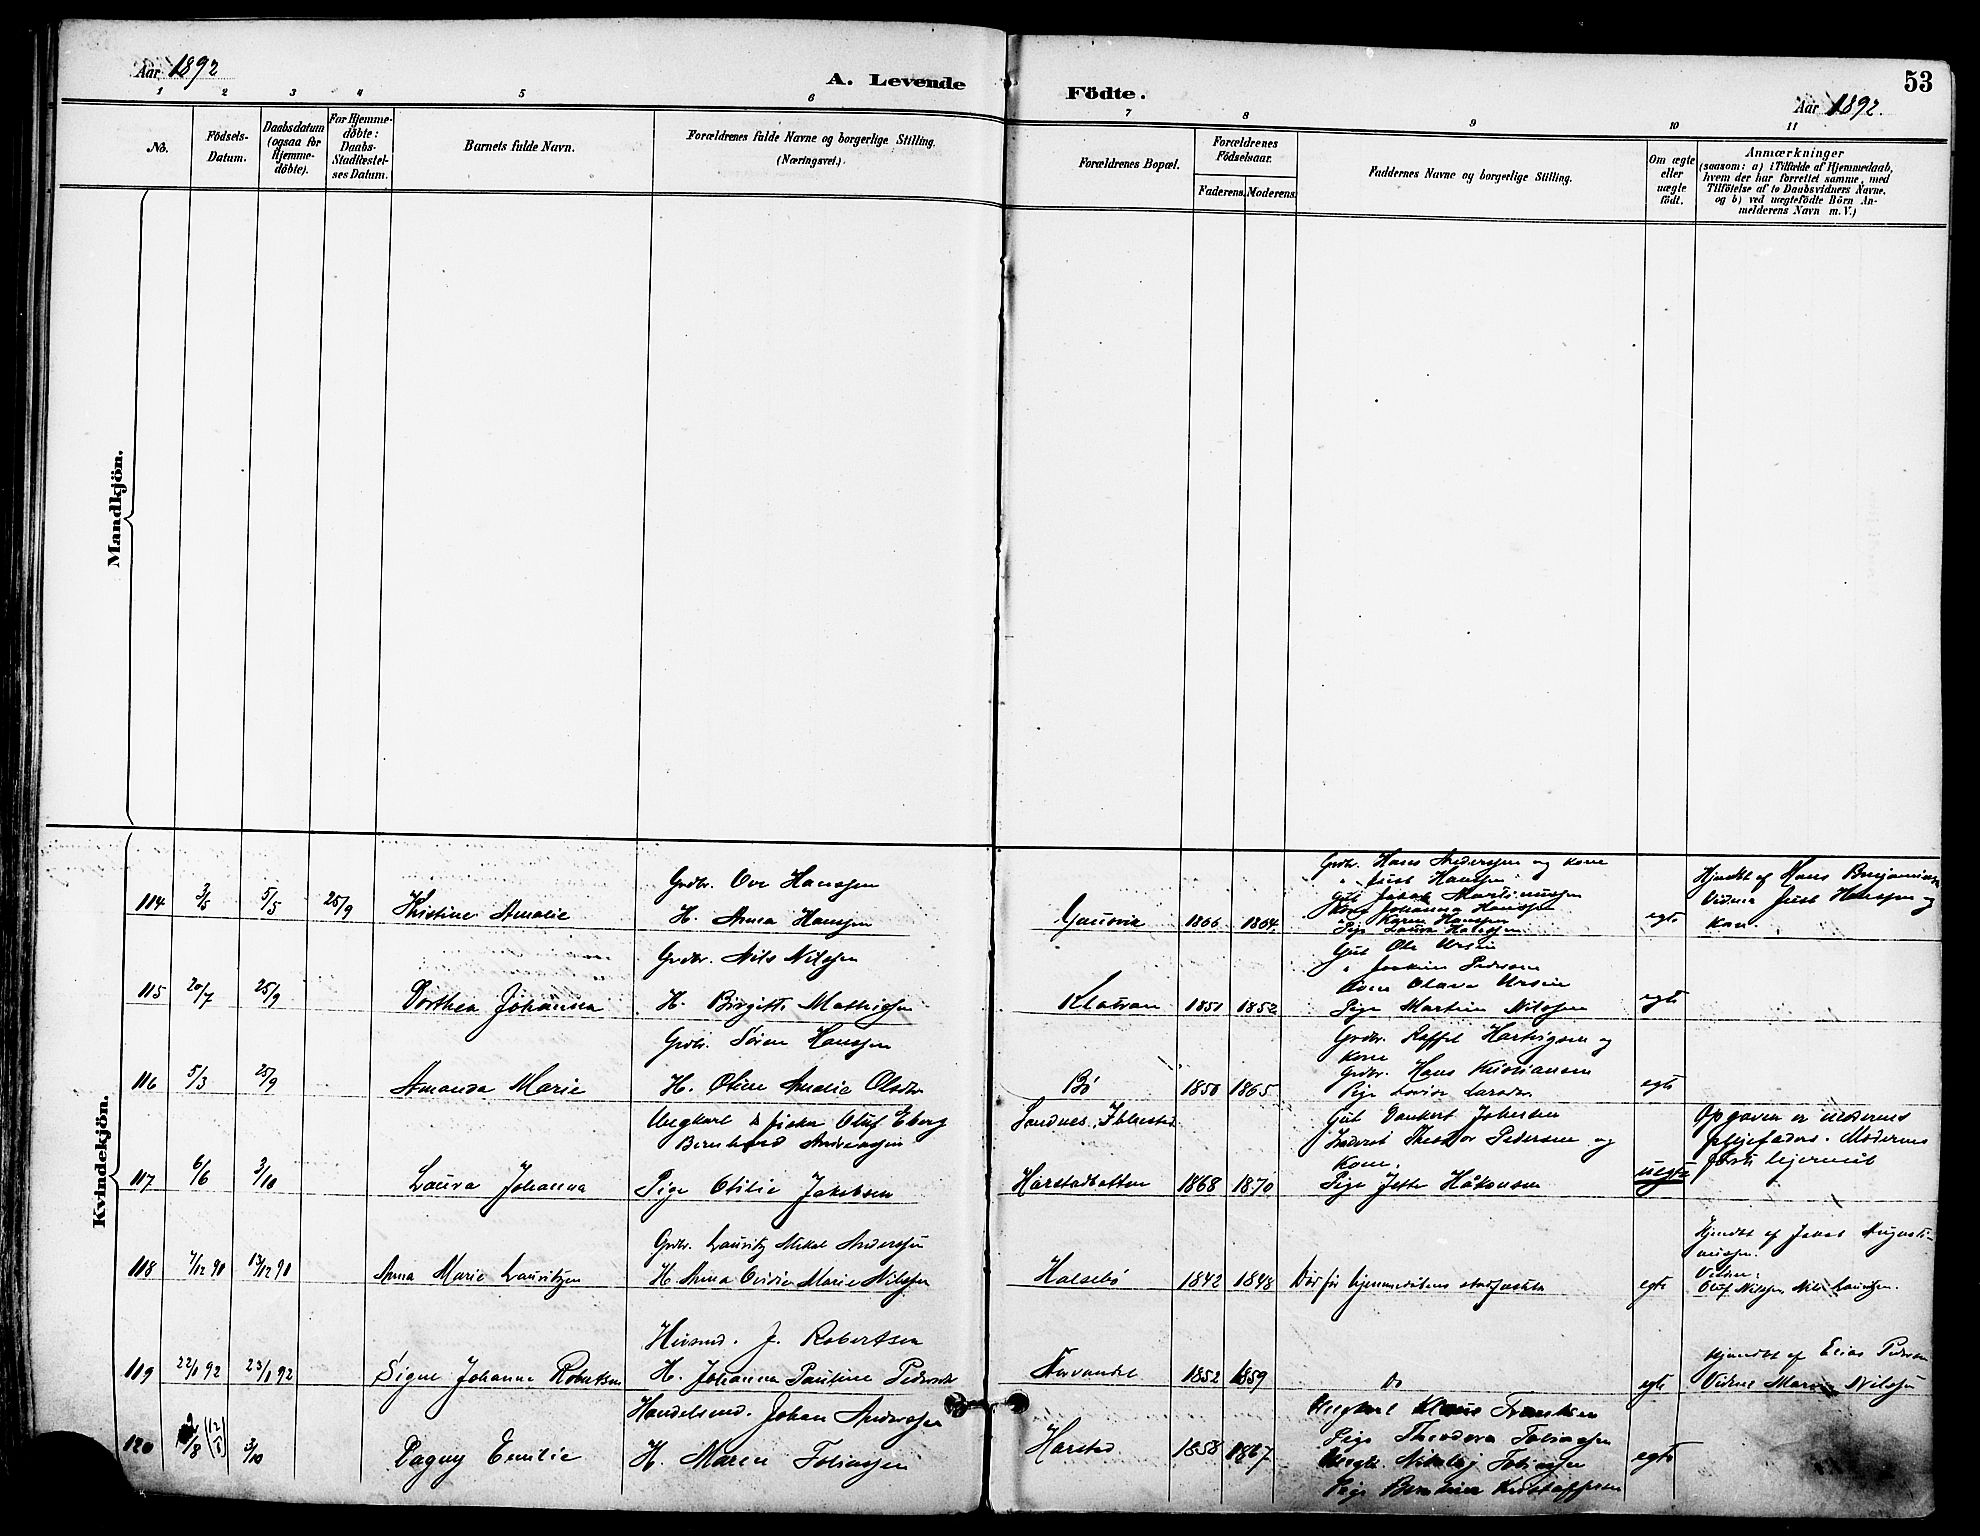 Aar 1892
A. Levende
Födte.
53
Aar 1892.
1 2 3 4 5 6 7 8 9 10 11
No.
Födsels-
Datum.
Daabsdatum
(ogsaa for
Hjemme-
döbte).
For Hjemme-
döbte:
Daabs-
Stadfæstel-
ses Datum.
Barnets fulde Navn.
Forældrenes fulde Navne og borgerlige Stilling.
(Næringsvei.)
Forældrenes Bopæl.
Forældrenes
Födselsaar.
Faderens. Moderens.
Faddernes Navne og borgerlige Stilling.
Om ægte
eller
uægte
födt.
Anmærkninger
(saasom: a) i Tilfælde af Hjemmedaab,
hvem der har forrettet samme, med
Tilföielse af to Daabsvidners Navne,
og b) ved uægtefödte Börn An-
melderens Navn m. V.)
Mandkjön.
Kvindekjön.
114 3/5 5/5 25/9
Kristine Amalie
Grdbr. Ove Hanssen
H. Anna Hanssen
Gausvik 1866 1864
Grdbr. Hans Anderssen og kone
" Just Hanssen
Gut Jakob Martinussen
Kone Johanna Hanssen
" Karen Hanssen
Pige Laura Hanssen
egte
Hjmdbt af Hans Benjaminsen
Vidner Just Hanssen og
kone.
115 20/7 25/9
Dorthea Johanna
Grdbr. Nils Nilssen
H. Birgitte Mathissen
1851 1852
Gut Ole Ursin
" Joakim Pedersen
Kone Olava Ursin
Pige Martine Nilssen
egte
116 5/3 25/9
Amanda Marie
Grdbr. Sören Hanssen
H. Oline Amalie Olsdtr
Bö 1850 1865
Grdbr. Roffel Hartvigsen og
kone
Grdbr. Hans Kristiansen
Pige Lovise Larsdtr
egte
117 6/6 3/10
Laura Johanna
Ungkarl & fisker Oluf Eberg
Bernhard Andreassen
Pige Otilie Jakobsen
Sandnes, Ibbestad
Harstadbotten 1868 1870
Gut Dankert Johansen
Inderst Theodor Pedersen og
Kone.
Pige Jette Håkonsen
uegte
Opgaven er modernes
plejefaders. Modernes
förste lejermaal
118 7/12 90 13/12 90
Anna Marie Lauritzen
Grdbr. Lauritz Mikal Anderssen
H. Anna Ovidia Marie Nilssen
Halsebö 1842 1848
Död för hjemmedåbens stadfæstelse
egte
Hjmdbt af Jakob Augusti-
nussen.
Vidner:
Oluf Nilssen, Nils Lauritzen.
119 22/1 92 23/1 92
Signe Johanne Robertsen
Husmd. J. Robertsen
H. Johanna Pauline Pedersdtr
1852 1859
Do
egte
Hjmdbt af Elias Pedersen
Vidne Maren Nilssen
120 2/8 (12/8) 3/10
Dagny Emilie
Handelsmd. Johan Anderssen
H. Maren Tobiassen
Harstad 1858 1867
Ungkarl Klaus Frantsen
Pige Theodora Tobiassen
Ungk. Nikolaj Tobiassen
Pige Berntine Kristoffersen
egte